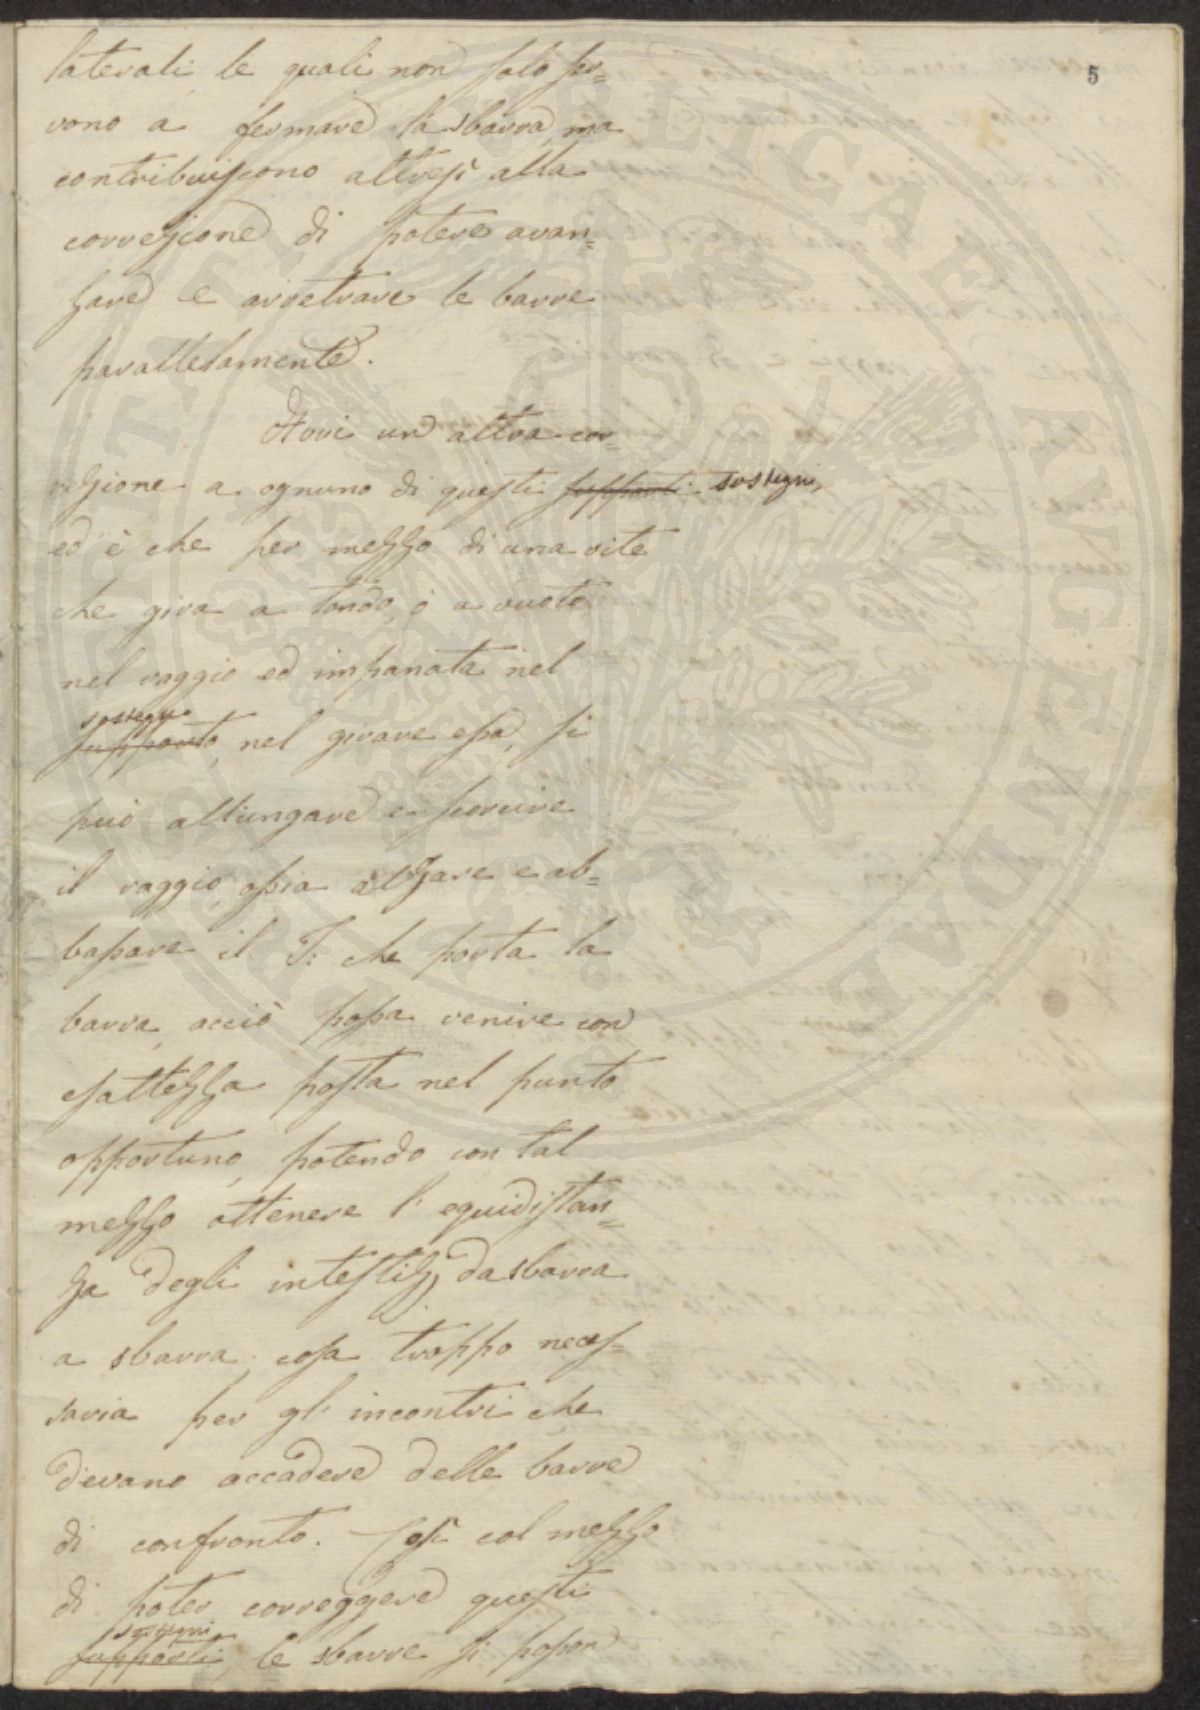 5
laterali le quali non solo ser=
vono a fermare la sbarra, ma
contribuiscono altresì alla
correzione di potere avan=
zare e arretrare le barre
parallelamente.
Hovi un altra cor=
rezione a ognuno di questi supporti sostegni,
ed è che per mezzo di una vite
che gira a tondo, o a vuoto
nel raggio ed impanata nel
sostegno
supporto, nel girare essa, si
può allungare e scorcire
il raggio, ossia alzare e ab=
bassare il T: che porta la
barra, acciò possa venire con
esattezza posta nel punto
opportuno, potendo con tal
mezzo ottenere l' equidistan=
za degli intestizj da sbarra
a sbarra, cosa troppo neces=
saria per gl' incontri che
devano accadere delle barre
di confronto. Così col mezzo
di poter correggere questi
sostegni
supporti, le sbarre si posson